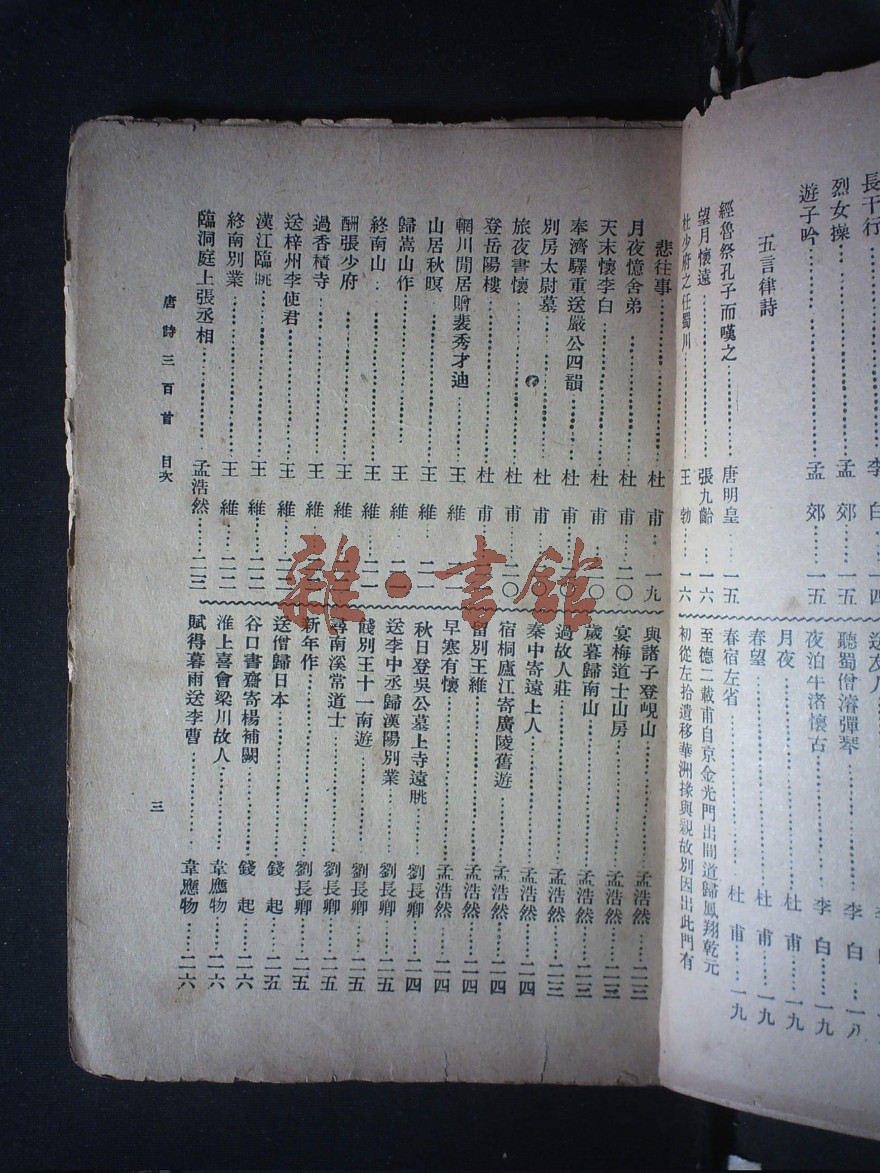 長干行……李白……一四
烈女操……孟郊……一五
遊子吟……孟郊……一五
五言律詩
經魯祭孔子而嘆之……唐明皇……一五
望月懷遠……張九齡…一六
杜少府之任蜀川……王勃…一六
送友人
聽蜀僧濬彈琴……李白…一八
夜泊牛渚懷古……李白……一九
月夜……杜甫……一九
春望……杜甫……一九
春宿左省……杜甫……一九
至德二載甫自京金光門出間道歸鳳翔乾元
初從左拾遺移華洲掾與親故別因出此門有
悲往事……杜甫……一九
月夜憶舍弟……杜甫……二〇
天末懷李白……杜甫……二〇
奉濟驛重送嚴公四韻……杜甫……二〇
別房太尉墓……杜甫……二〇
旅夜書懷……杜甫……二〇
登岳陽樓……杜甫……二〇
輞川閒居贈裴秀才迪……王維……二一
山居秋暝……王維……二一
歸嵩山作……王維……二一
終南山……王維……二一
酬張少府……王維
過香積寺……王維
送梓州李使君……王維……二二
漢江臨眺……王維……二二
終南別業……王維……二二
臨洞庭上張丞相……孟浩然……二三
與諸子登峴山……孟浩然……二三
宴梅道士山房……孟浩然……二三
歲暮歸南山……孟浩然……二三
過故人莊……孟浩然……二三
秦中寄遠上人……孟浩然……二四
宿桐廬江寄廣陵舊遊……孟浩然……二四
留別王維……孟浩然……二四
早寒有懷……孟浩然……二四
秋日登吳公墓上寺遠眺……劉長卿……二四
送李中丞歸漢陽別業……劉長卿……二五
餞別王十一南遊……劉長卿……二五
尋南溪常道士……劉長卿……二五
新年作……劉長卿……二五
送僧歸日本……錢起……二五
谷口書齋寄楊補闕……錢起……二六
淮上喜會梁川故人……韋應物……二六
賦得暮雨送李曹……韋應物……二六
唐詩三百首 目次
三
雜·書館